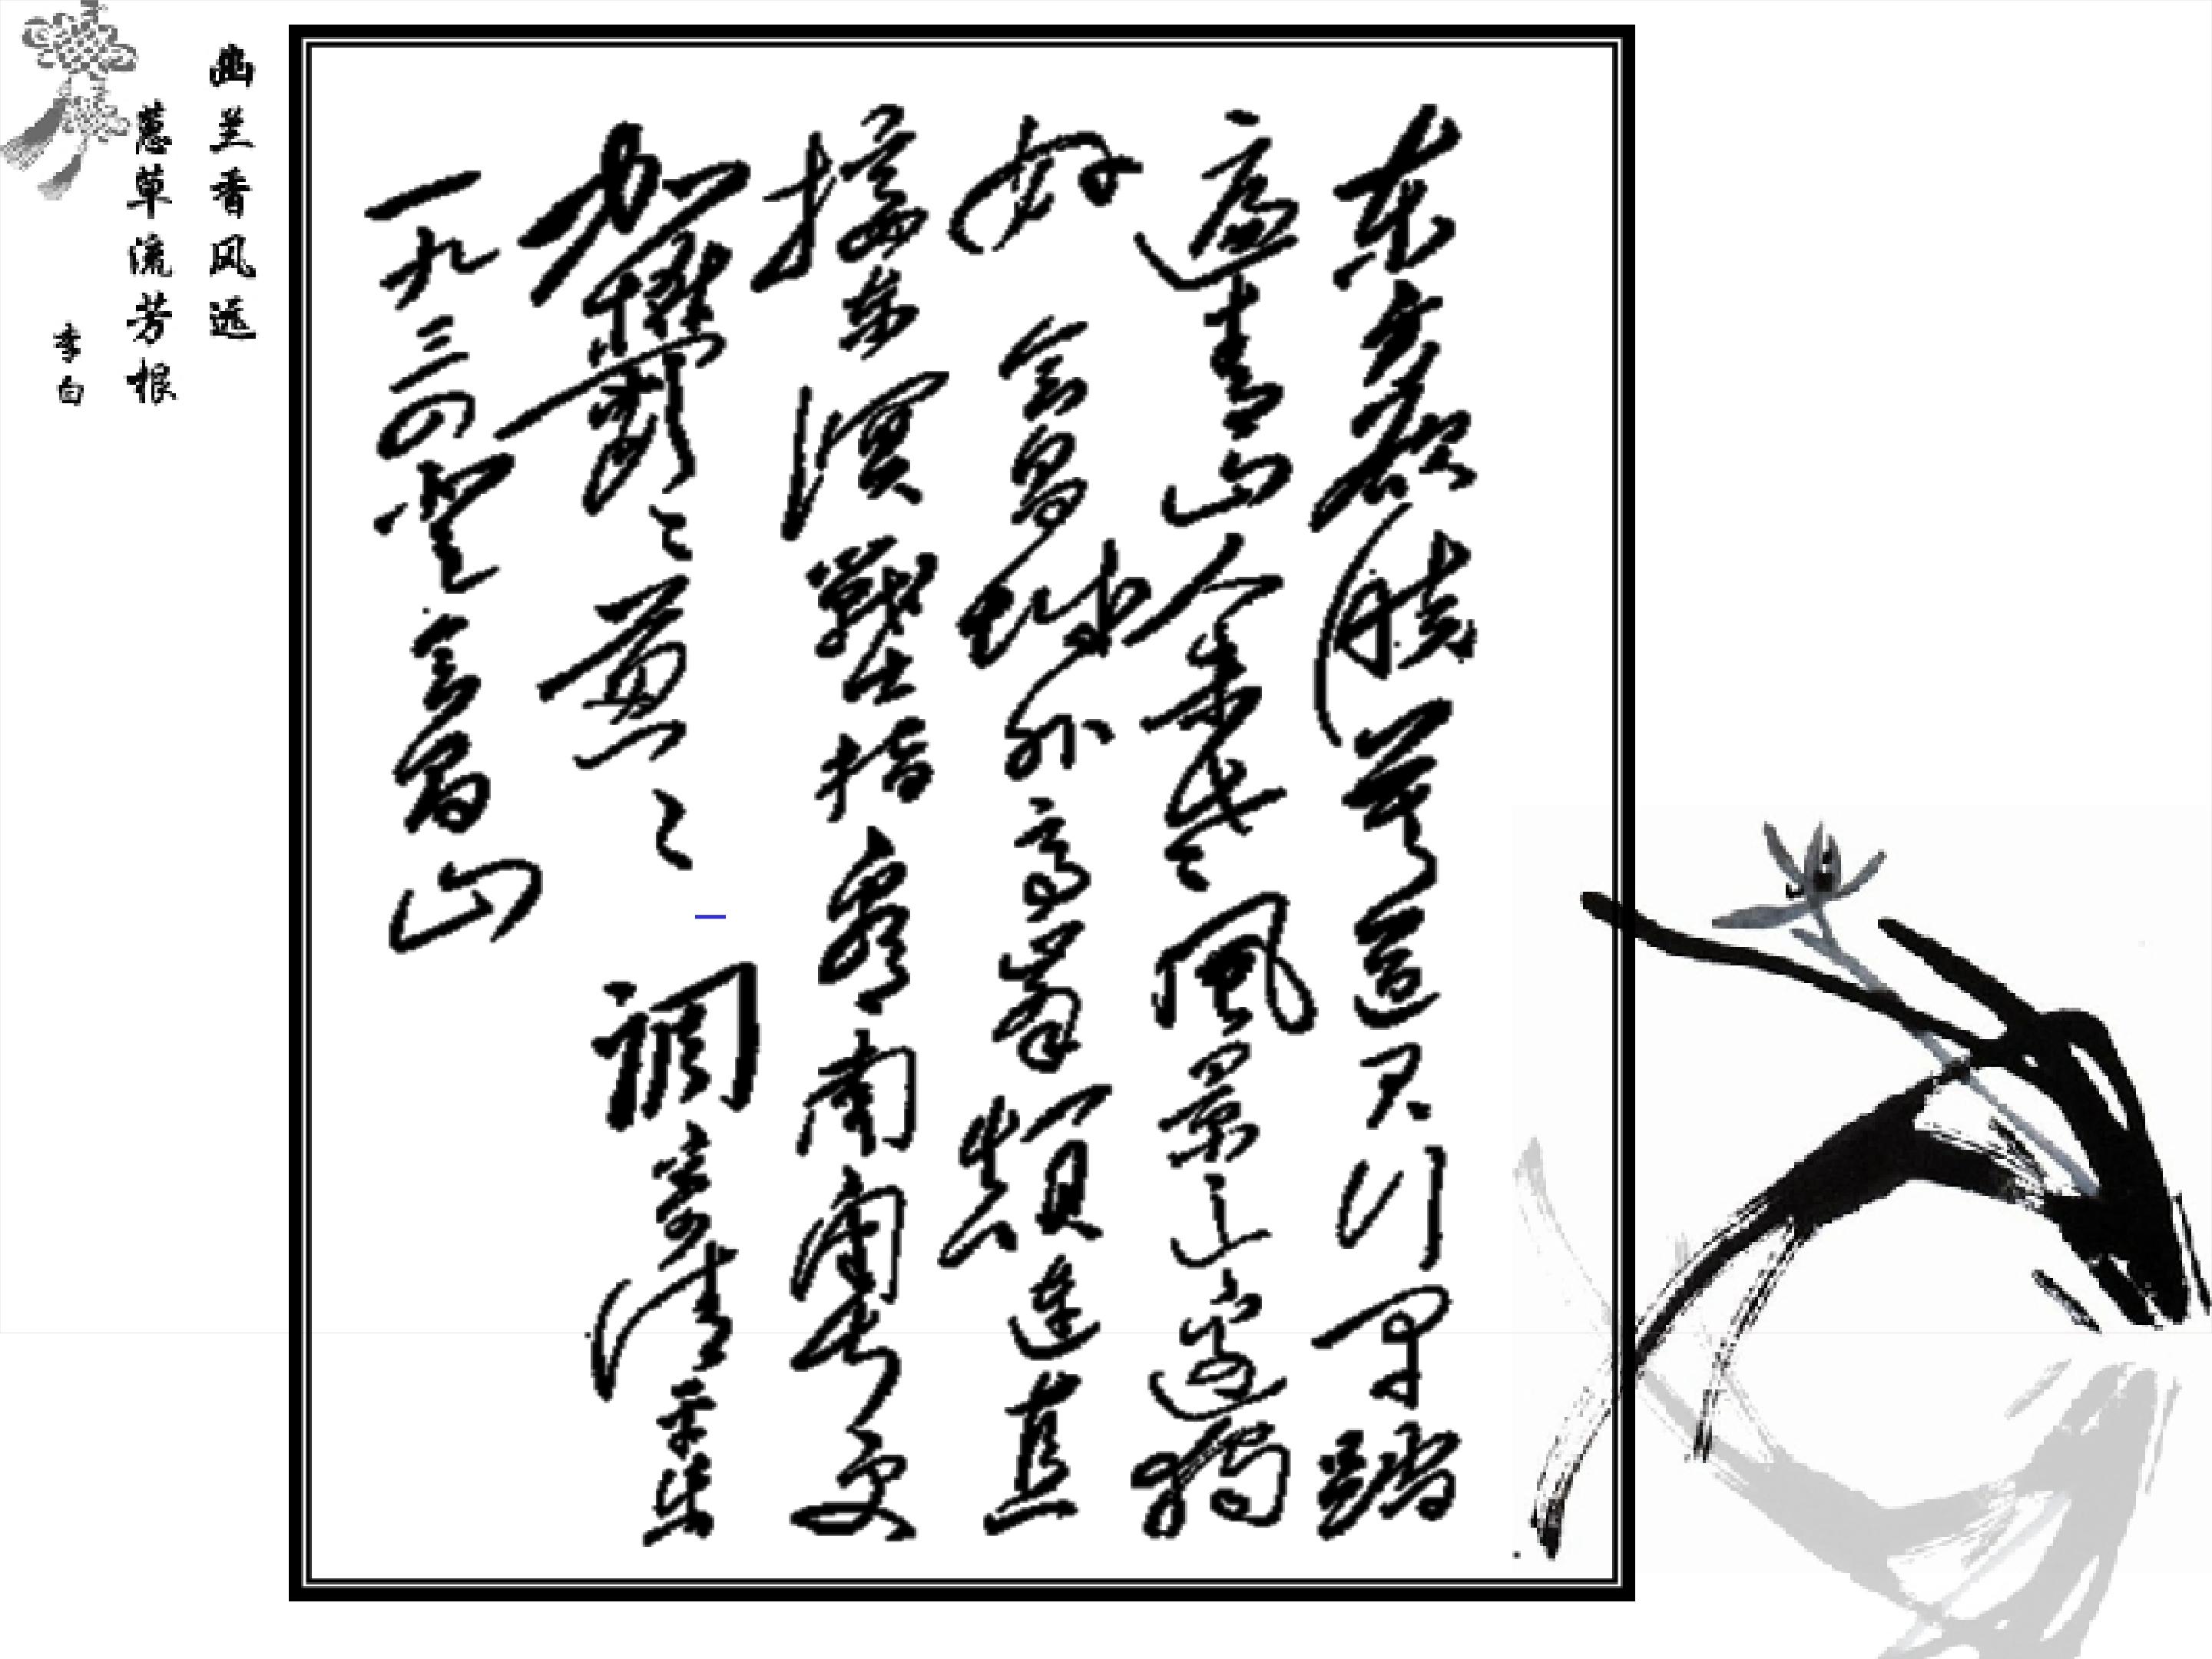 东方欲曉莫道君行早踏
遍青山人未老風景这边獨
好 会昌城外高峯顛连直
接东溟戰士指看南粤更
加鬱々葱々 調寄清平乐
一九三四登会昌山
幽兰香风远
蕙草流芳根
李白